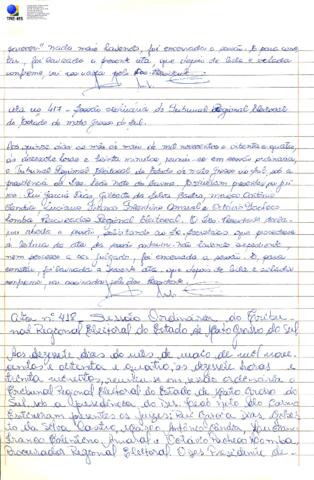 TRE-MS
nada mais havendo, foi encerrada a sessão. E, para cons-
tar, foi lavrada a presente ata, que depois de lida e achada
conforme, vai assinada pelo Des. Presidente.
Ata nº 417 - Sessão ordinária do Tribunal Regional Eleitoral
do Estado de Mato Grosso do Sul.
Aos quinze dias do mês de maio de mil novecentos e oitenta e quatro,
às dezessete horas e trinta minutos, reuniu-se em sessão ordinária,
o Tribunal Regional Eleitoral do Estado de Mato Grosso do Sul, sob a
presidência do Des. Estiveram presentes os juí-
zes: Rui Garcia Dias, Gilberto da Silva Castro, Marco Antônio
Cândia, Luciano Franco Tolentino Amaral e Otávio Pacheco
Lomba, Procurador Regional Eleitoral. O Des. Presidente decla-
rou aberta a sessão, solicitando ao Sr. Secretário que procedesse
à leitura da ata da sessão anterior. Não havendo expediente,
nem processo a ser julgado, foi encerrada a sessão. E, para
constar, foi lavrada a presente ata, que depois de lida e achada
conforme, vai assinada pelo Des. Presidente.
Ata nº 418 - Sessão Ordinária do Tribu-
nal Regional Eleitoral do Estado de Mato Grosso do Sul
Aos dezessete dias do mês de maio de mil nove-
centos e oitenta e quatro, às dezessete horas e
trinta minutos, reuniu-se em sessão ordinária o
Tribunal Regional Eleitoral do Estado de Mato Grosso do
Sul, sob a Presidência do Des.
Estiveram presentes os juízes: Rui Garcia Dias, Gilber-
to da Silva Castro, Marco Antônio Cândia, Luciano
Franco Tolentino Amaral e Otávio Pacheco Lomba,
Procurador Regional Eleitoral. O Des. Presidente de-